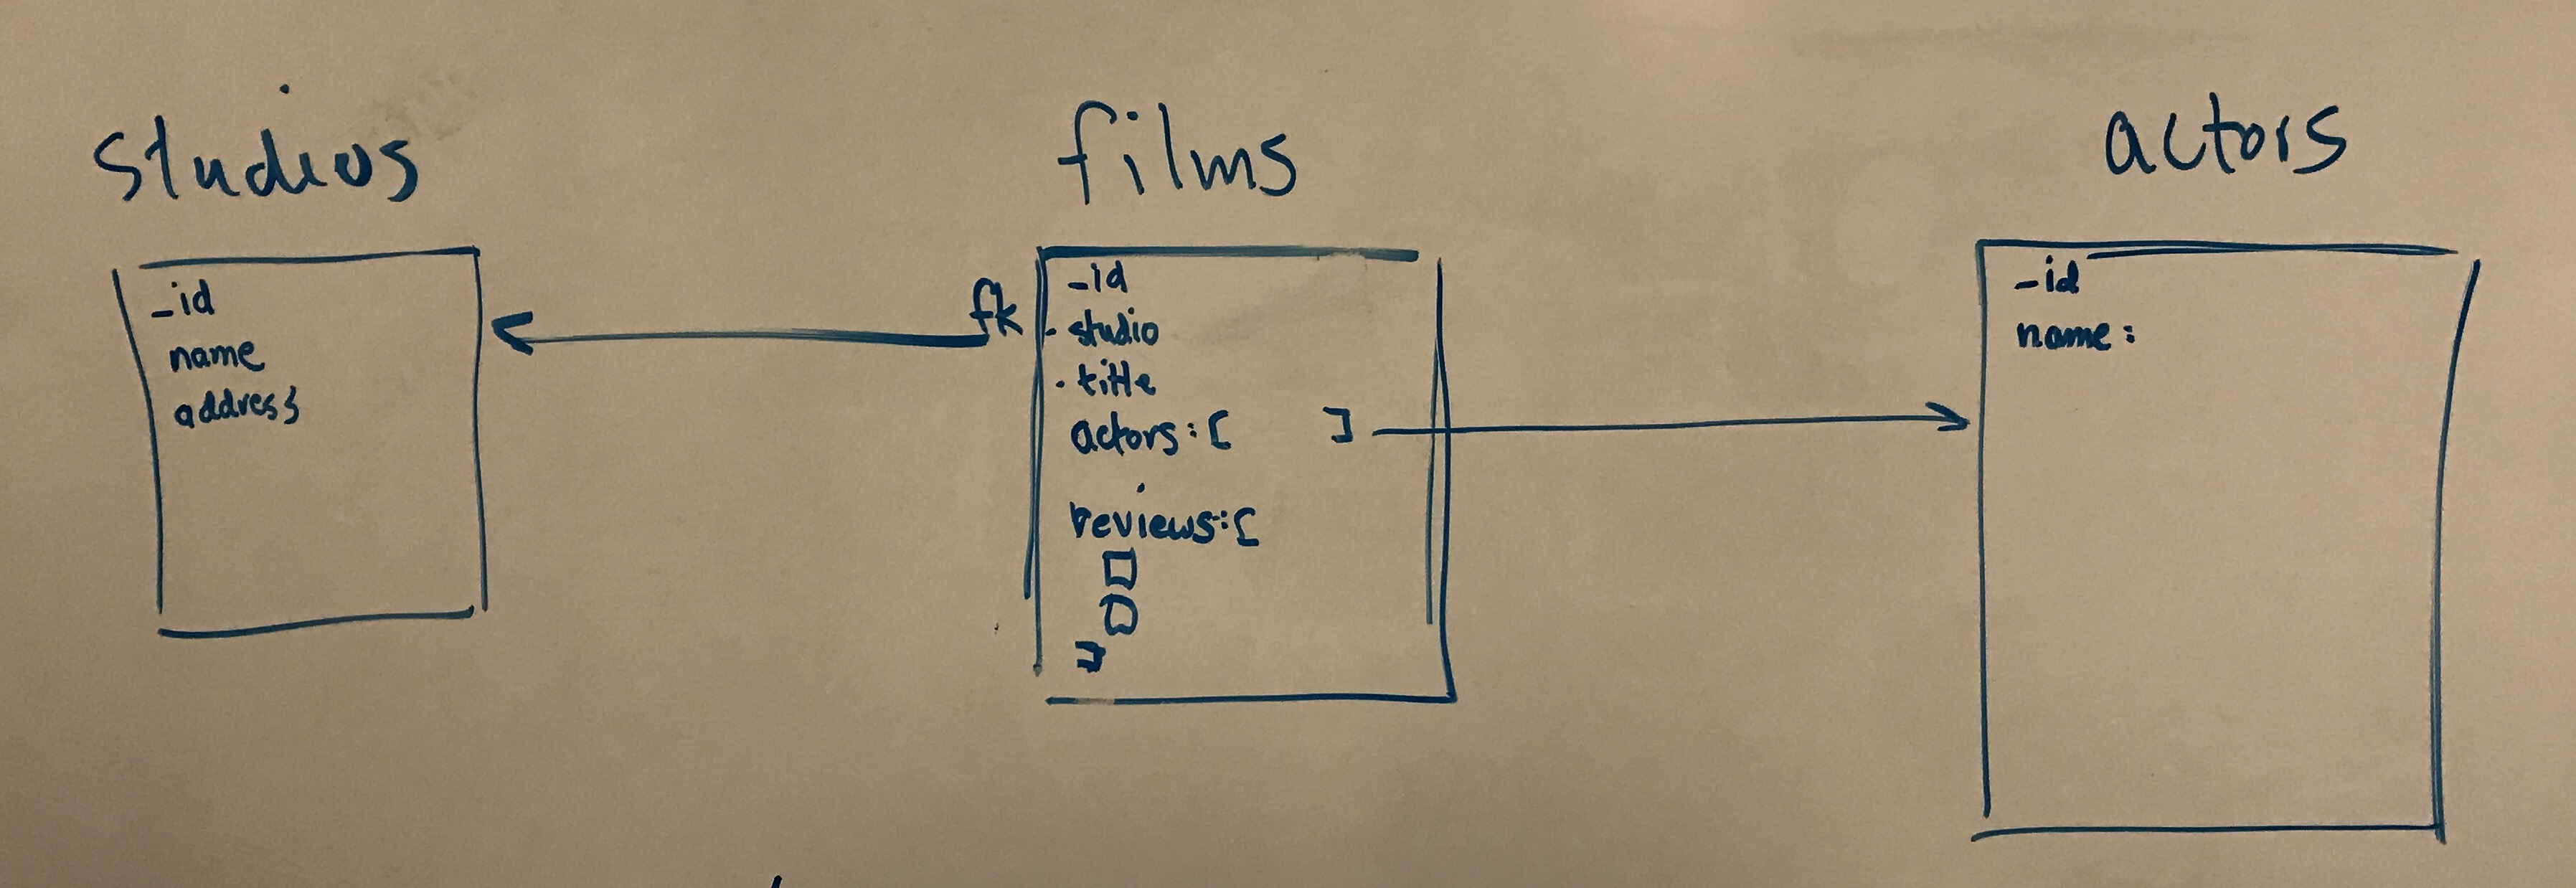 studios
_id
name
address
films
fk
_id
- studio
· title
actors: [ ]
reviews: [
]
actors
_id
name: